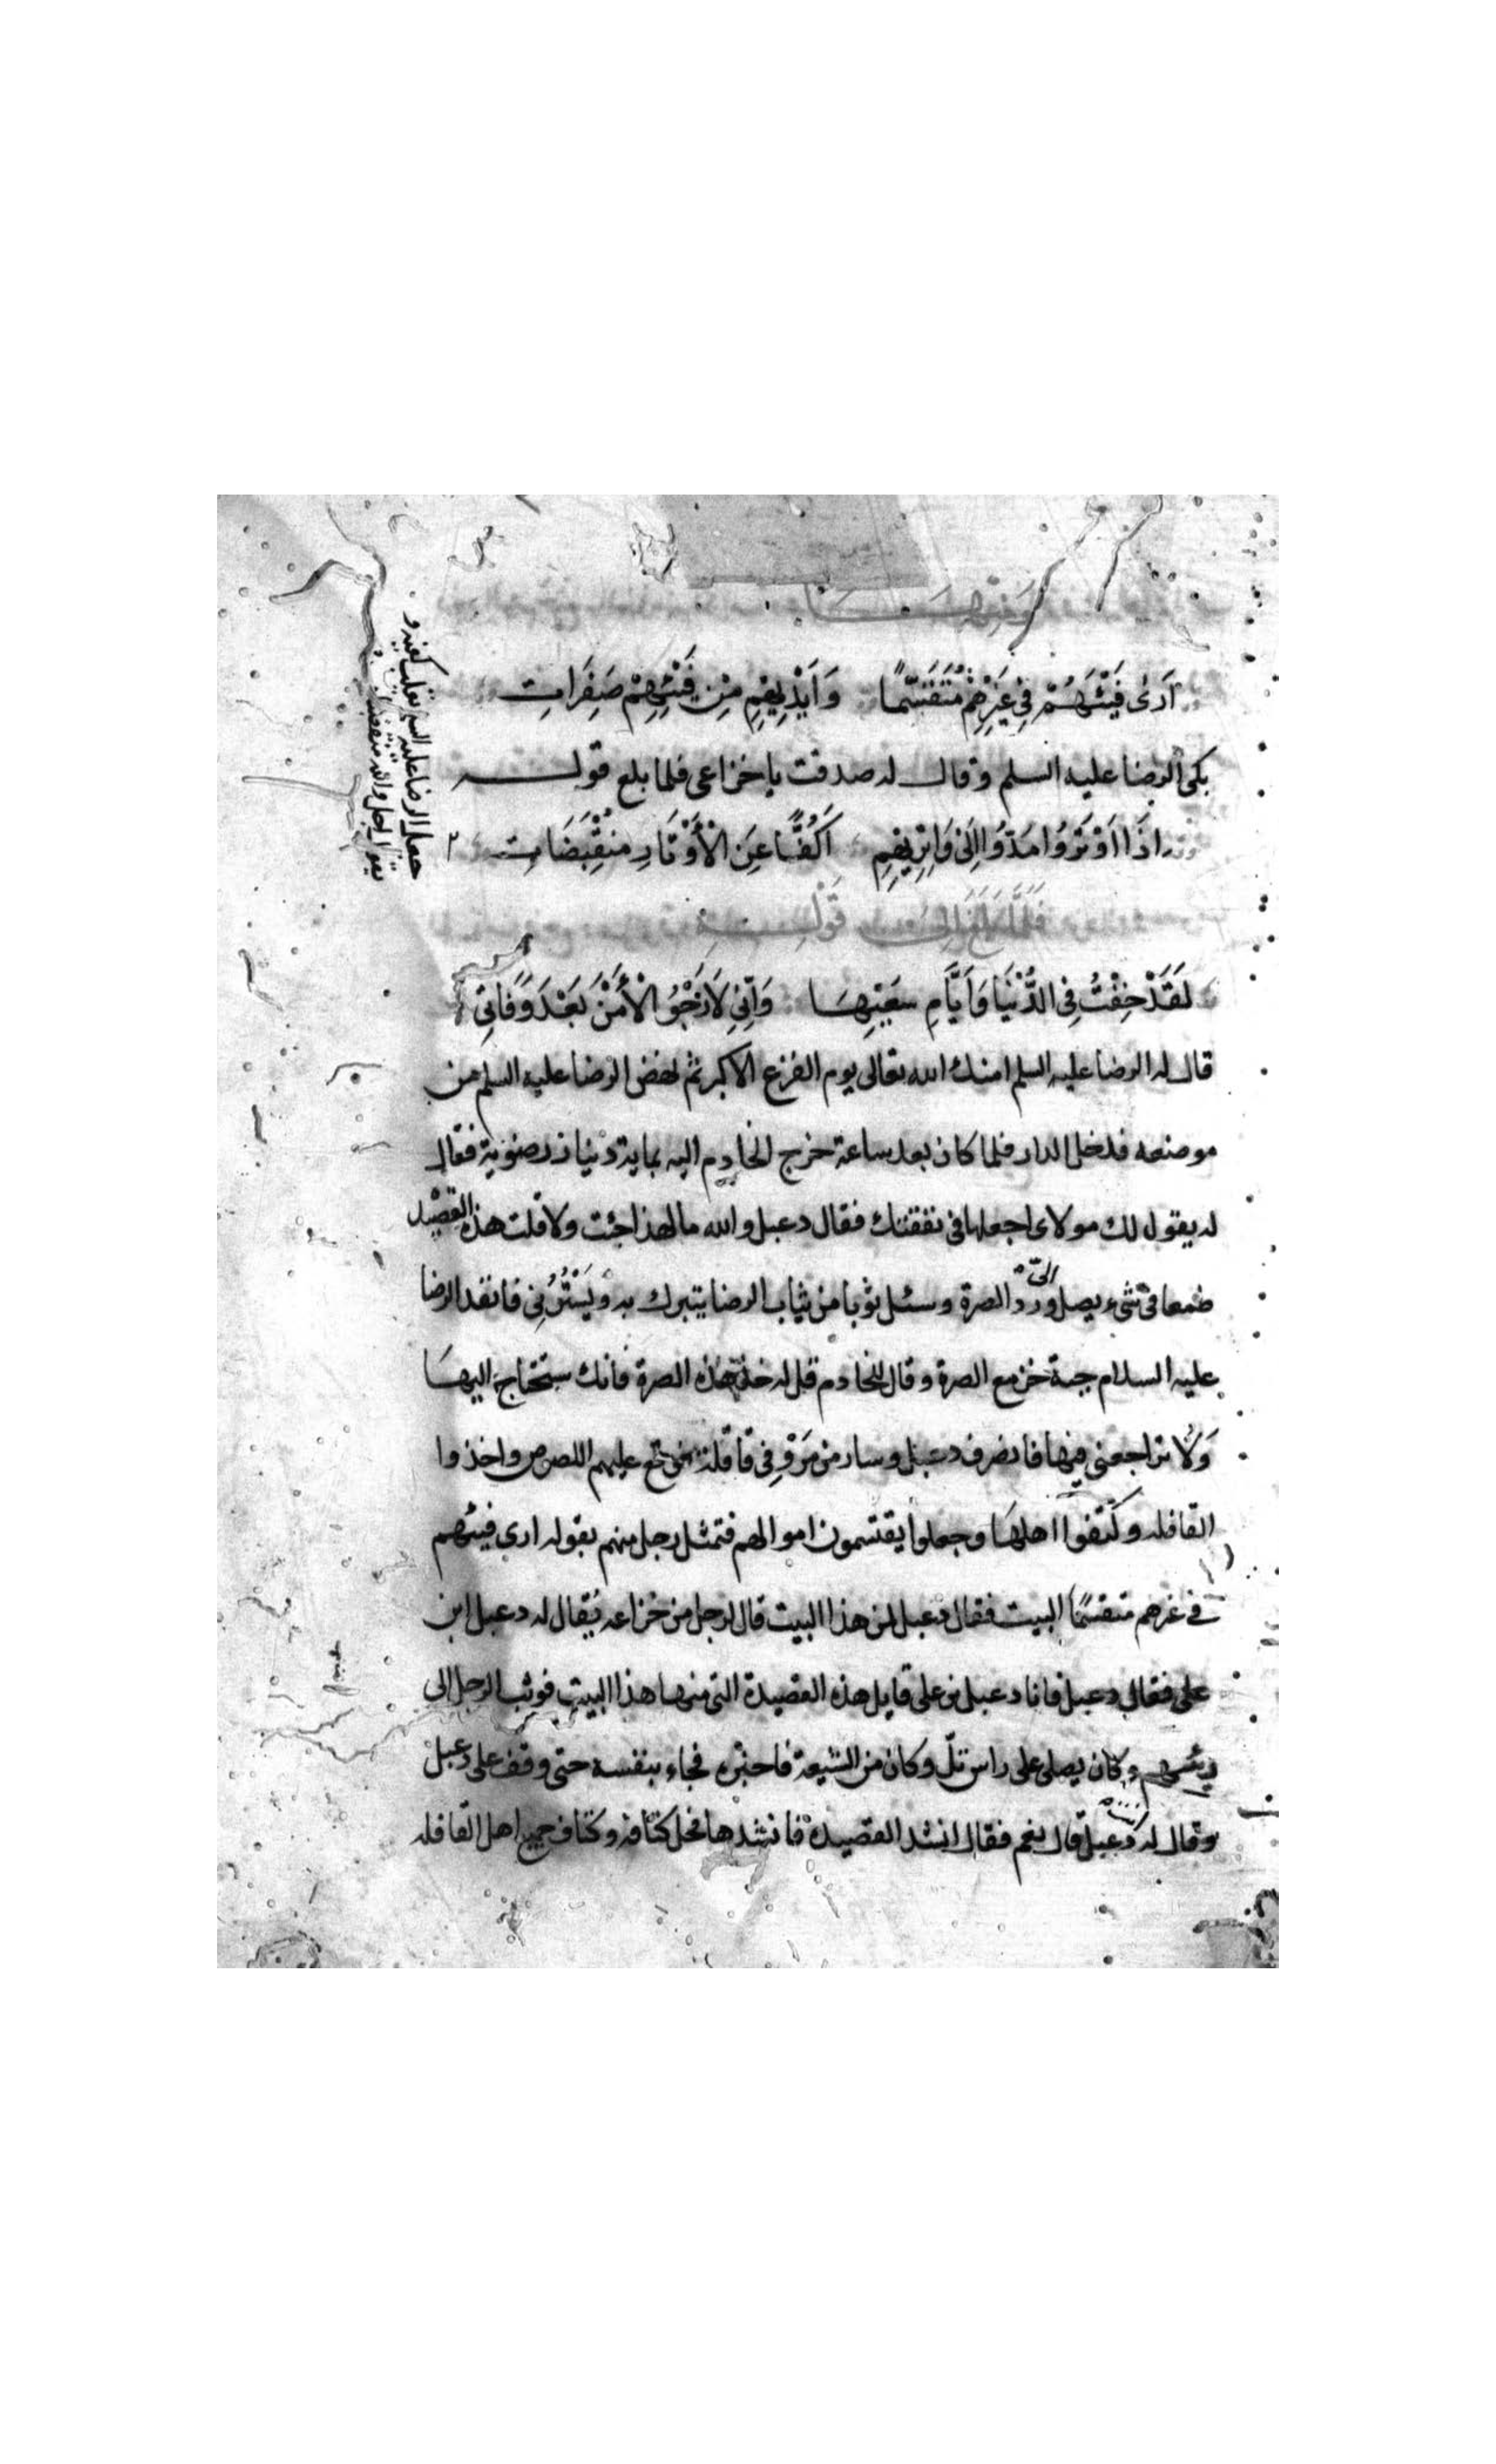 اَرىٰ فَيْئَهُمْ فِي غَيْرِهِمْ مُتَقَسَّمًا وَاَيْدِيهِمِ مِنْ فَيْئِهِمْ صَفِرَاتِ
بكى الرضا عليه السلم وقال له صدقت يا خزاعى فلما بلغ قوله
اِذَا اوْتَرُوا مَدُّوا اِلَى وَاتِرِيهِمِ اَكُفًّا عَنِ الْأَوْتَارِ مُنْقَبِضَاتِ
جعل الرضا عليه السلم يقلب كفيه و
يقول اجل والله منقبضات
فَلَمَّا بَلَغَ اِلى قَوْلِهِ
لَقَدْ خِفْتُ فِي الدُّنْيَا وَاَيَّامِ سَعْيِهَا وَاِنِّي لَاَرْجُو الْأَمْنَ بَعْدَ وَفَاتِي
قال له الرضا عليه السلم امنك الله تعالى يوم الفزع الاكبر ثم نهض الرضا عليه السلم من
موضعه فدخل الدار فلما كان بعد ساعة خرج الخادم اليه بماية دينار رضوية فقال
له يقول لك مولاى اجعلها فى نفقتك فقال دعبل والله ما لهذا جئت ولا قلت هذه القصيد
طمعا فى شىء يصل الىّ ورد الصرة وسئل ثوبا من ثياب الرضا يتبرك به ويَسْتُرُنِي فانفذ الرضا
عليه السلام جبة خز مع الصرة وقال للخادم قل له خذ هذه الصرة فانك ستحتاج اليها
وَلا تراجعنى فيها فانصرف دعبل وسار من مَرْوِ فِي قافلة فوقع عليهم اللصوص واخذوا
القافله وكتفوا اهلها وجعلوا يقتسمون اموالهم فتمثل رجل منهم بقوله ارى فيئهم
فى غيرهم متقسمًا البيت فقال دعبل لمن هذا البيت قال لرجل من خزاعه يُقال له دعبل ابن
على فقال دعبل فانا دعبل بن على قايل هذه القصيدة التى منها هذا البيت فوثب الرجل الى
رئيسهم وكان يصلى على راس تلّ وكان من الشيعة فاخبره فجاء بنفسه حتى وقف على دعبل
وقال له انت دعبل قال نعم فقال انشد القصيدة فانشدها فحل كتافه وكتاف جميع اهل القافله